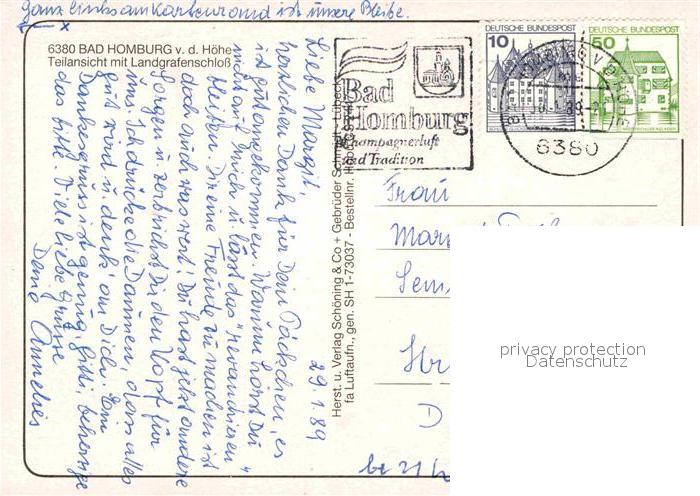 ganz links am Kartenrand ist unsere Bleibe.
← x
6380 BAD HOMBURG v. d. Höhe
Teilansicht mit Landgrafenschloß
Liebe Margit,
herzlichen Dank für Dein Päckchen, es
ist gut angekommen. Warum hörst Du
nicht auf mich u. lässt das "revanchieren"
bleiben. Dir eine Freude zu machen ist
doch auch was wert! Du hast jetzt andere
Sorgen u. zerbrichst Du den Kopf für
uns. Ich drücke die Daumen, dass alles
gut wird u. denk' an Dich. Ein
Dankesgruss ist genug, gell, beherzige
das bitte. Viele liebe Grüsse
Deine Annelies
29.1.89
Herst. u. Verlag Schöning & Co + Gebrüder Schmidt, Lübeck
fa Luftaufn., gen. SH 1-73037 - Bestellnr. Ho
Bad
Homburg
Champagnerluft
und Tradition
DEUTSCHE BUNDESPOST
10
DEUTSCHE BUNDESPOST
50
6380
Frau
D
privacy protection
Datenschutz